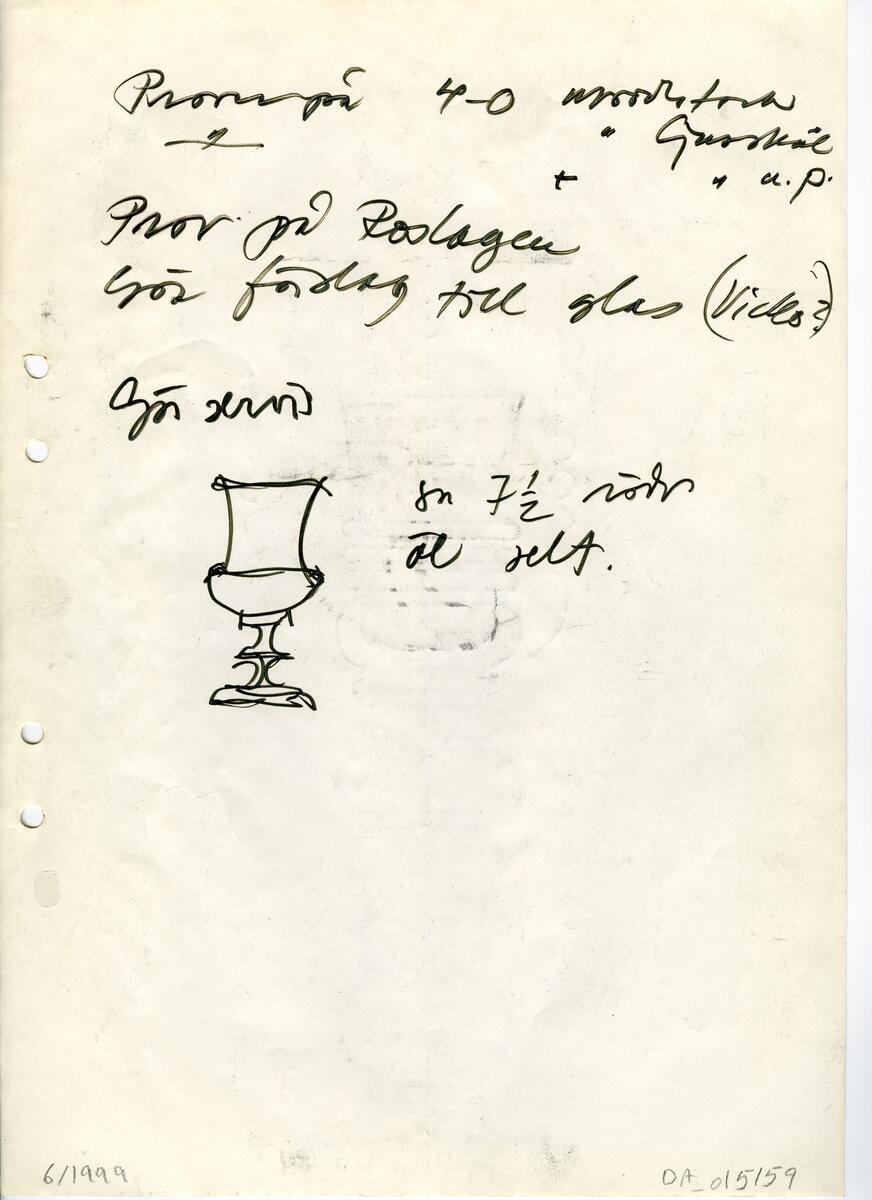 Prover på 4-0
" " Ljusskål
+ " u.p.
Prov på Roslagen
Gör förslag till glas (Vicke?)
Gör servis
sn 7 1/2 röd
öl selt.
6/1999
DA_015159